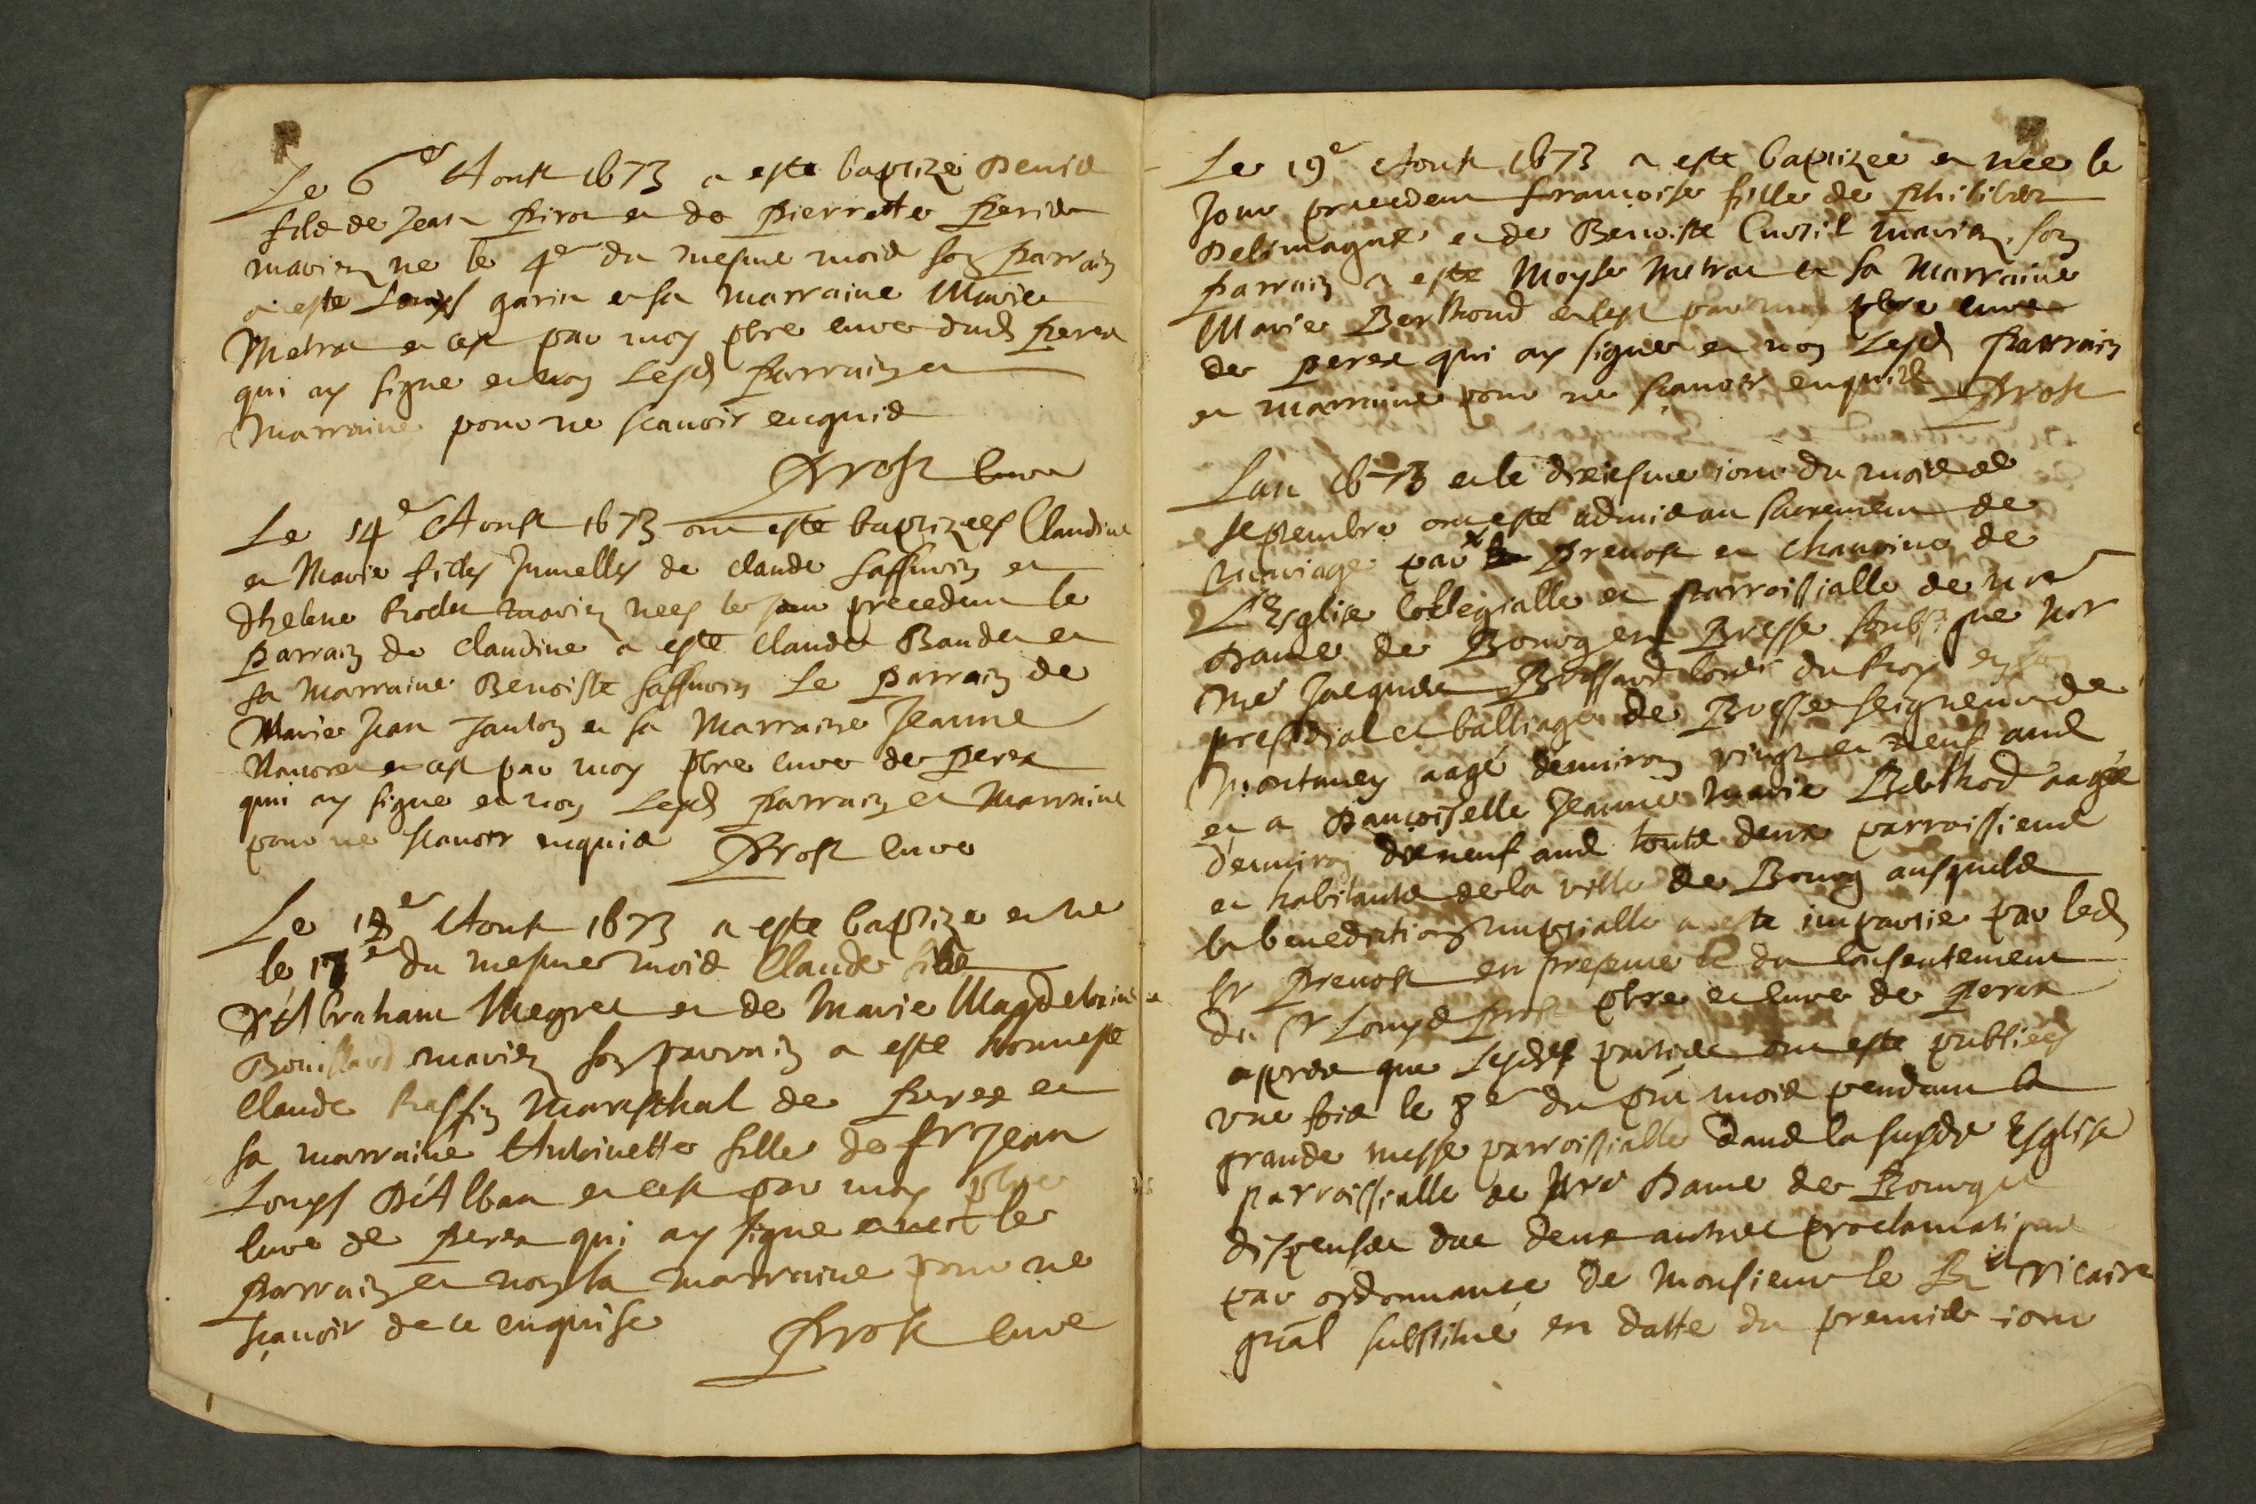 Le 6e Aoust 1673 a este baptizé Denis
fils de Jean Pirot et de Pierrette Perier
mariez ne le 4e du mesme mois son parrain
a este Louys garin et sa marraine Marie
Metrat et cest par moy pbre cure dud Perex
qui ay signe et non lesd parrain et
marraine pour ne scavoir enquis
Prost cure
Le 14e Aoust 1673 ont este baptizees Claudine
et Marie filles Jumelles de claude et
dhelene mariez nees le jour precedent le
parrain de Claudine a este Claude Bandet et
sa Marraine Benoiste Le parrain de
Marie Jean Janton et sa Marraine Jeanne
et cest par moy pbre cure de perex
qui ay signe et non lesd parrain et Marraine
pour ne scavoir enquis Prost cure
Le Aoust 1673 a este baptizé et ne
le 17e du mesme mois Claude fils
D'Abraham Megret et de Marie Magdelaine
Bouillard mariez son parrain a este honneste
Claude mareschal de Perex et
sa marraine Anthoinette fille de Sr Jean
Louys D'Alban et cest par moy pbre
cure de perex qui ay signe avec le
parrain et non la marraine pour ne
sçavoir de ce enquise Prost cure
Le 19e Aoust 1673 a este baptizee et nee le
Jour precedent françoise fille de philibert
Delomagne et de Benoiste Curtil mariez, son
parrain a este Moyse Metrat et sa Marraine
Marie Berthoud et cest par moy pbre cure
de perex qui ay signe et non lesd parrain
et marraine pour ne sçavoir enquis Prost
Lan 1673 et le dixiesme jour du mois de
septembre ont este admis au sacrement de
mariage par Prevost et chanoine de
L'Esglise Collegialle et parroissialle de nre
Dame de Bourg en Bresse soubsigne
Me Jacques Brossard coner du Roy en son
presidial et balliage de Bresse seigneur de
Montaney aagé denviron vingt et neuf ans
et a Damoiselle Jeanne Marie Berthod aagée
denviron dix neuf ans touts deux parroissiens
et habitants de la ville de Bourg ausquels
la benediction nuptialle a este impartie par led
Sr Prevost en presence et du consentement
du Sr Louys Prost pbre et cure de perex
apres que lesdes parties ont este publiees
une fois le 8e du pnt mois pendant la
grande messe parroissialle dans la susde Esglise
parroissialle de Nre Dame de Bourg et
dispensees des deux autres proclamations
par ordonnance de Monsieur le Rd vicaire
gnal substitué en datte du premier jour